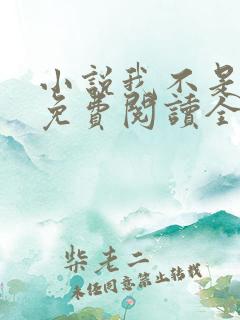 小說我不是
免費閱讀全
柴老二
未经同意禁止转载